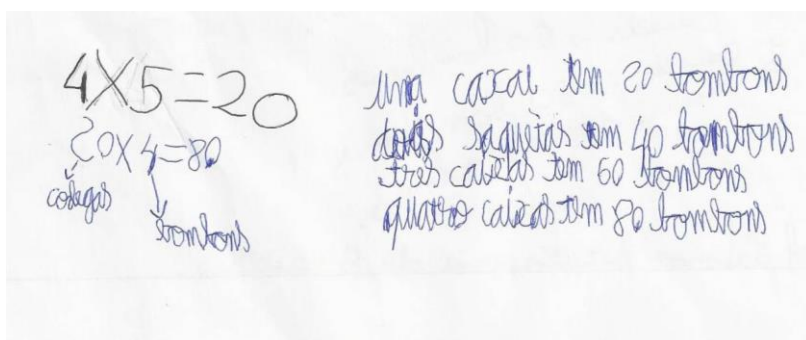 4X5=20
20x4=80
colegas
bombons
uma caxai tem 20 bombons
dois saquetas tem 40 bombons
três caixas tem 60 bombons
quatro caixas tem 80 bombons